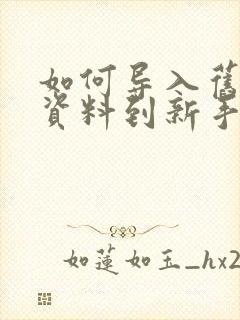 如何导入舊
資料到新手
如蓮如玉_hx2